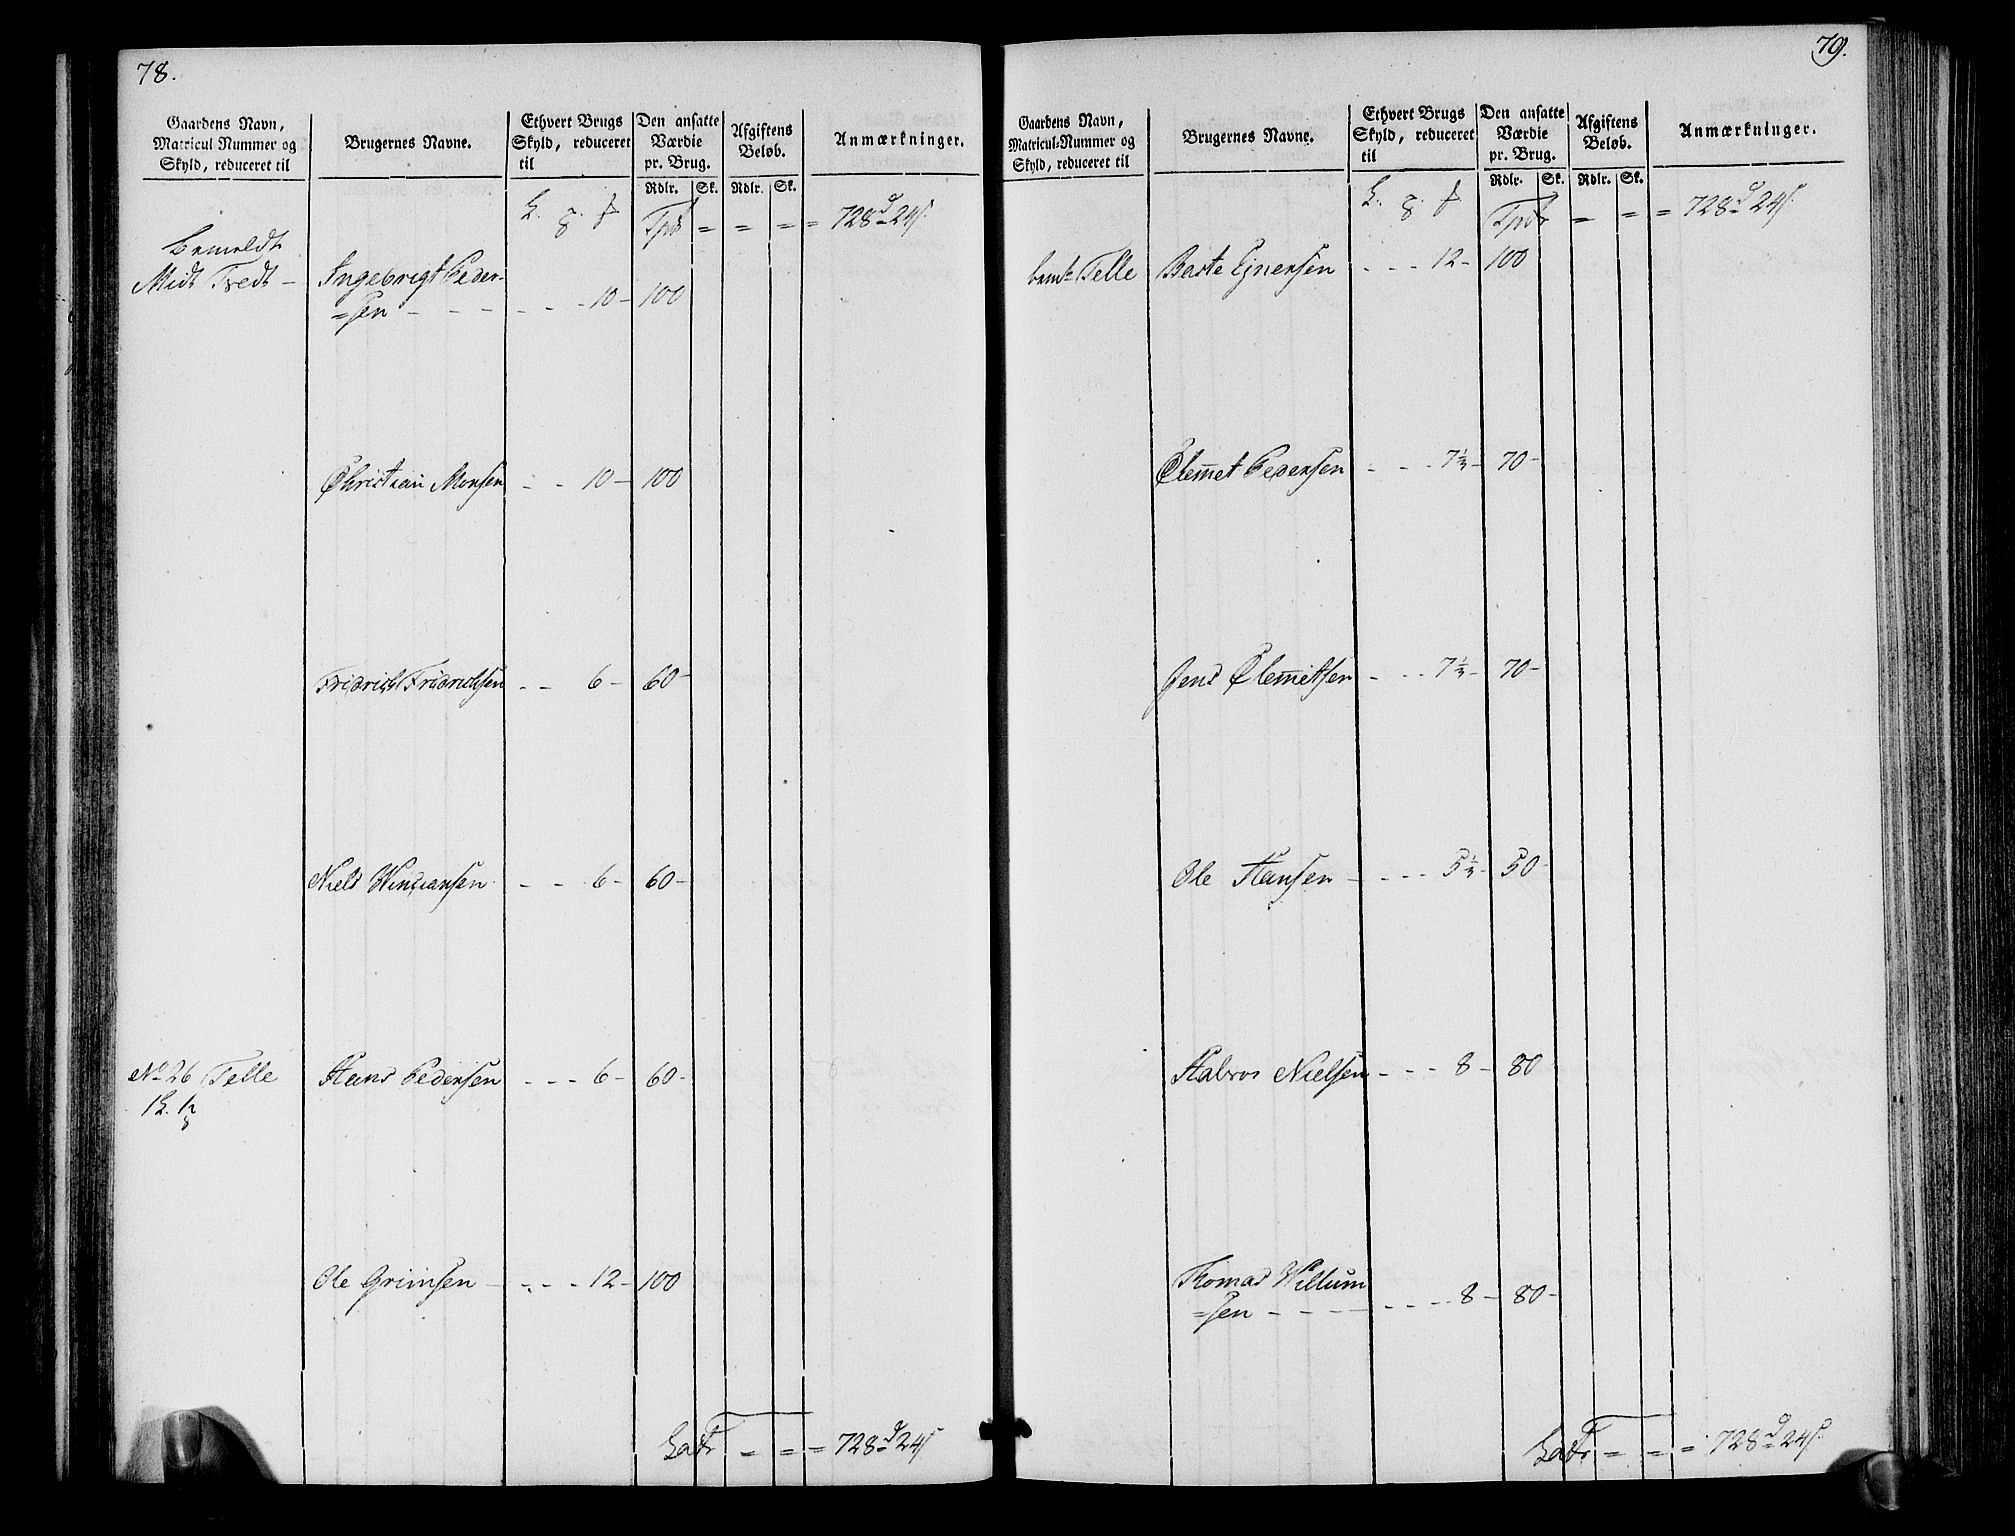 78.
Gaardens Navn,
Matricul Nummer og
Skyld, reduceret til
Brugernes Navne.
Ethvert Brugs
Skyld, reduceret
til
Den ansatte
Værdie
pr. Brug.
Rdlr. Sk.
Afgiftens
Beløb.
Rdlr. Sk.
Anmærkninger.
Tpt = = = = 728d 24s.
Bemeldt
Midt Tvedt - Ingebrigt Peder-
=sen - - - - - - 10 - 100
Christian Monsen - - 10 - 100
Fridrich Fridrichsen - - 6 - 60 -
Niels - - 6 - 60 -
No 26 Telle Hans Pedersen - - - 6 - 60 -
Ole Grimsen - - - - 12 - 100
Latr = = = 728d 24s
79.
Gaardens Navn,
Matricul-Nummer og
Skyld, reduceret til
Brugernes Navne.
Ethvert Brugs
Skyld, reduceret
til
Den ansatte
Værdie
pr. Brug.
Rdlr. Sk.
Afgiftens
Beløb.
Rdlr. Sk.
Anmærkninger.
Tpt = = = 728d 24s.
bemt Telle Baste Ejnersen - - - 12 - 100
Clemet Pedersen - - - 7½ - 70 -
Jens Clemetsen - - - 7½ - 70 -
Ole Hansen - - - - 5½ - 50 -
Halvor Nielsen - - - 8 - 80 -
Thomas Willum
=sen - - - - - - - 8 - 80 -
Latr = = = 728d 24s.